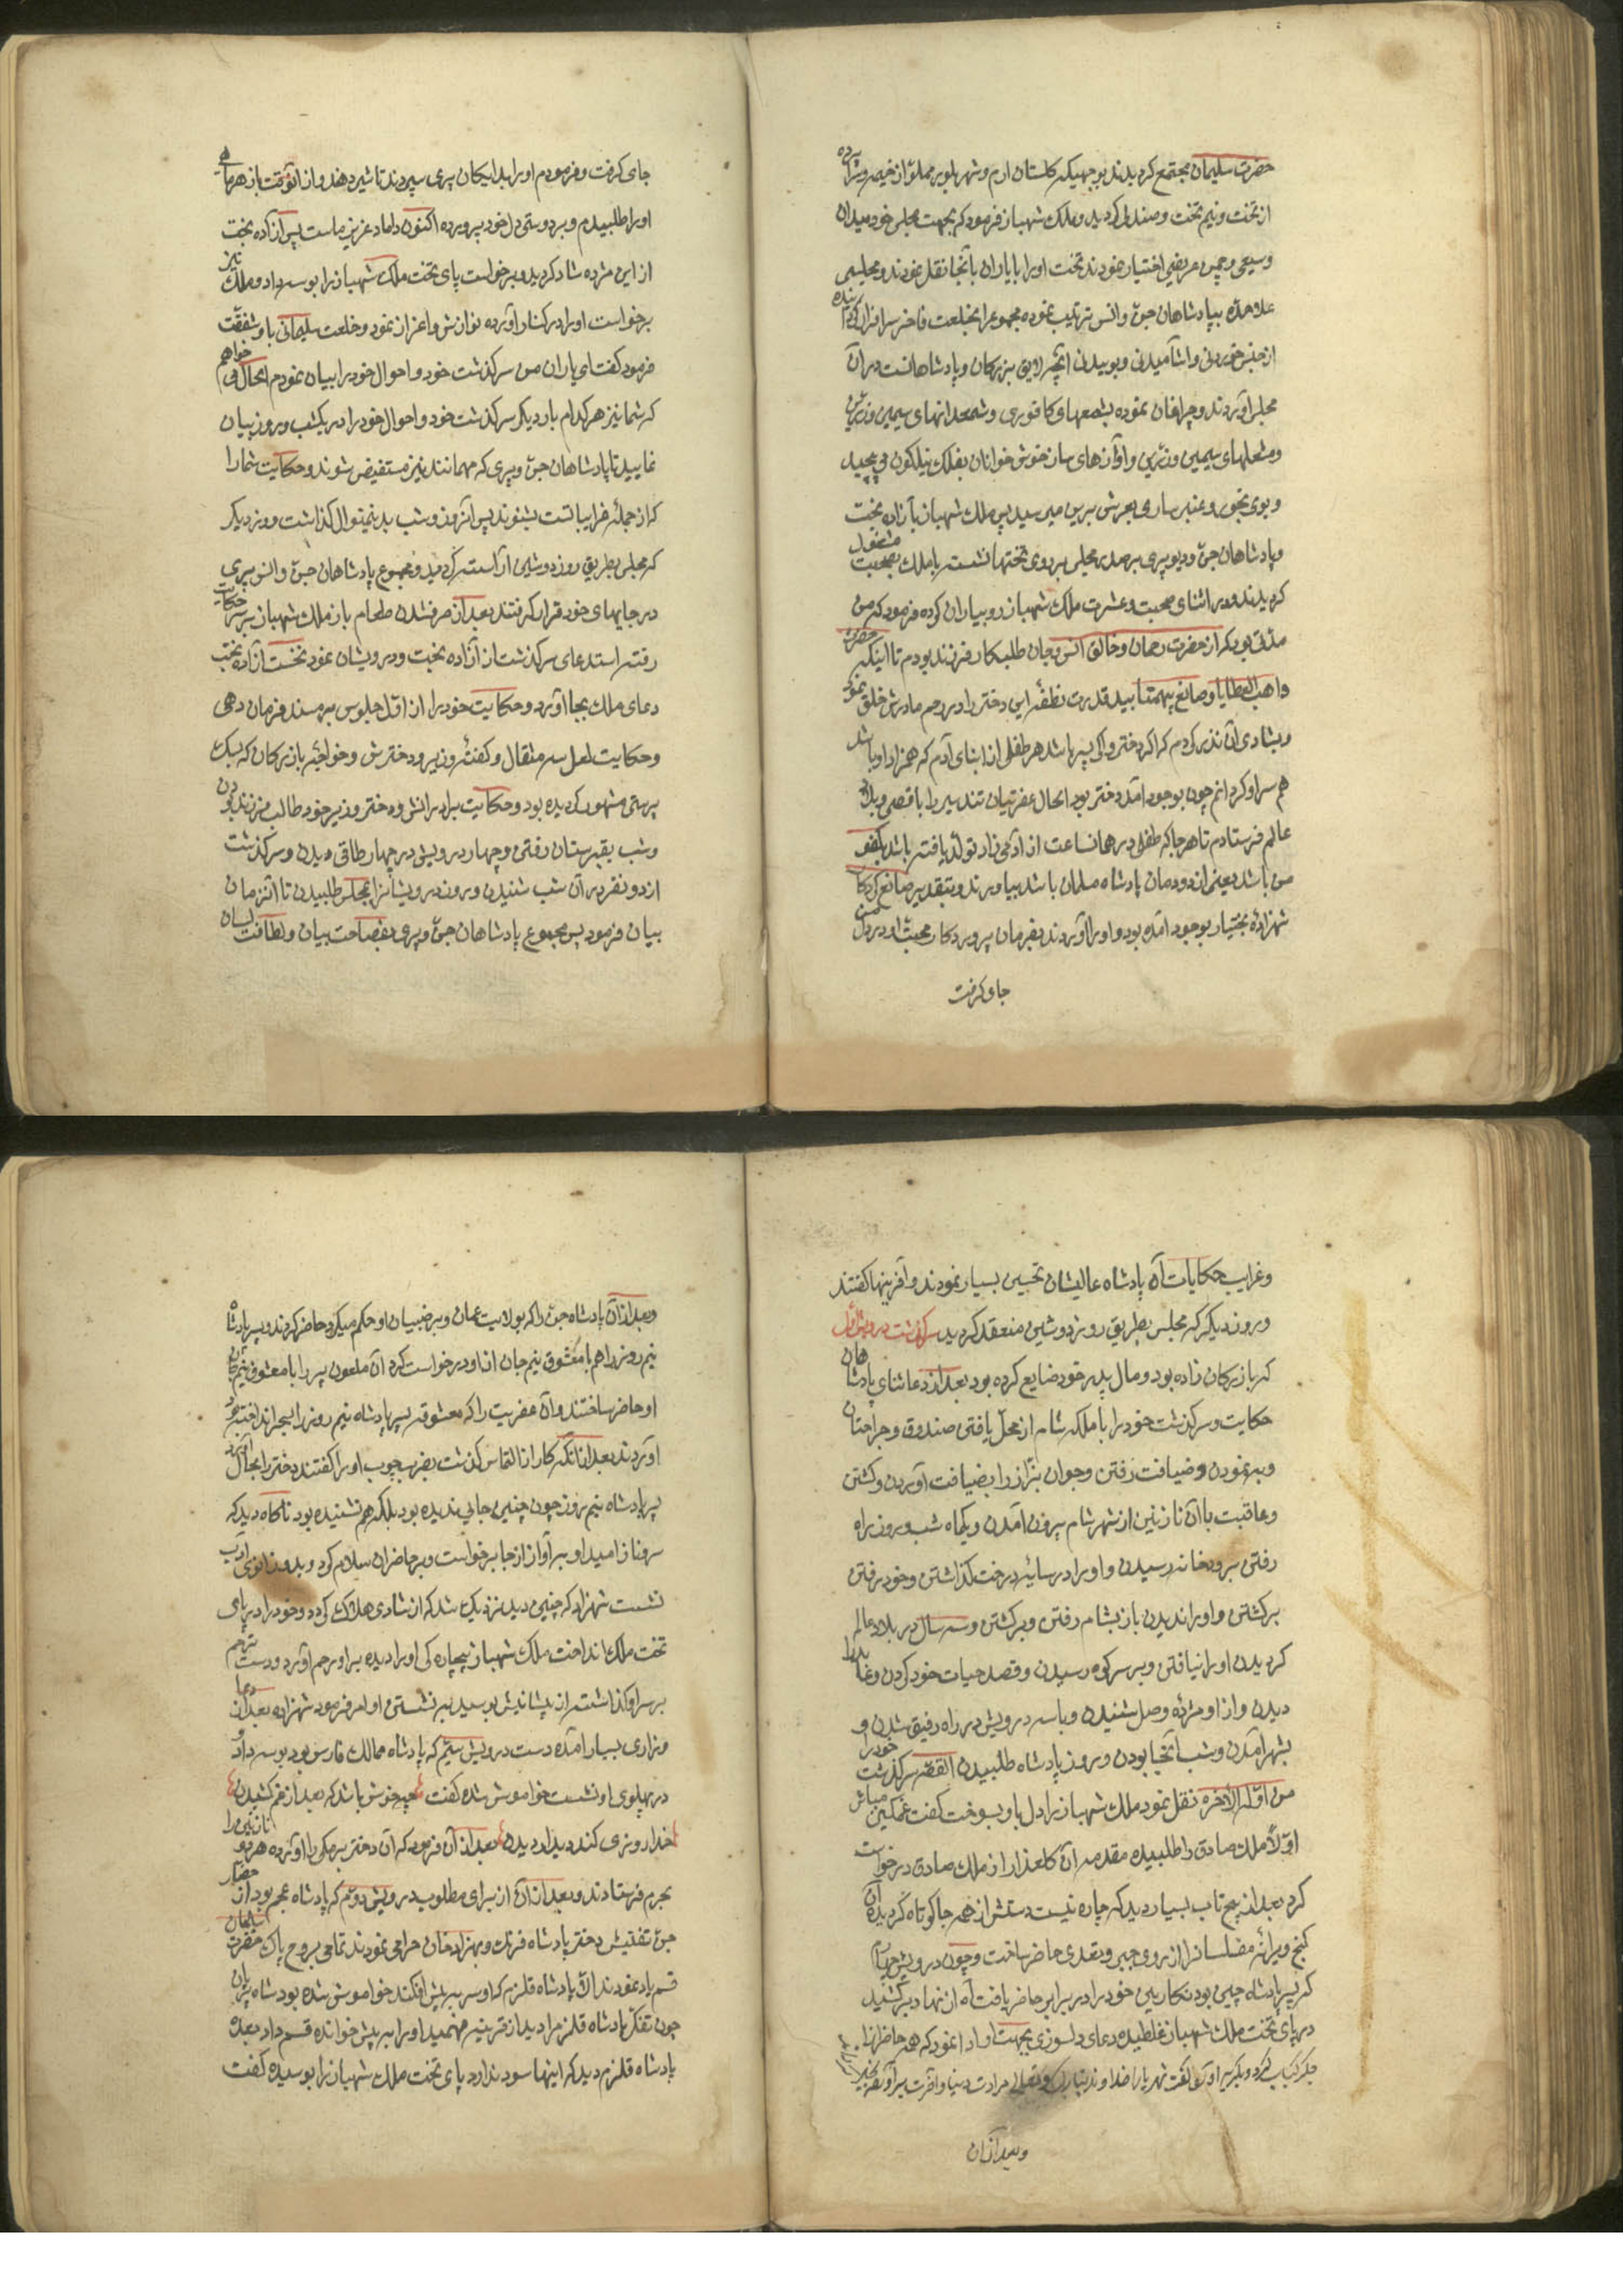 حضرت سلیمان مجتمع کردیدند بوجهیکه کلستان ارم و شهر بلور مملوّ از خیمه و سرا پرده
از تخت و نیم تخت و صندلی کردید و ملک شهباز فرمود که بجهت مجلس خود میدان
وسیعی و چمن مرتفعی اختیار نمودند تخت او را با یاران بآنجا نقل نمودند و مجلسی
علاحده بپادشاهان جن و انس ترتیب نموده مجموع را بخلعت فاخر سرافراز کردانیده
از جنس خوردنی و اشآمیدنی و بوییدنی آنچه لایق بزرکان و پادشاهانست در آن
مجلس آوردند و چراغان نموده بشمعهای کافوری و شمعدانهای سیمین و زرین
و مشعلهای سیمین و زرین و آوازهای ساز خوش خوانان بفلک نیلکون می پیچید
و بوی بخور و عنبر سارا بعرش برین میرسید پس ملک شهباز با آزاده بخت
و پادشاهان جن و دیو و پری بر صدر مجلس بر روی تختها نشسته با ملک بصحبت مشغول
کردیدند و در اثنای صحبت و عشرت ملک شهباز رو بیاران کرده فرمود که من
مدتی بود که از حضرت رحمان و خالق انس و جان طلبکار فرزند بودم تا اینکه حضرت
واهب العطایا و صانع بیهمتا بید قدرت نطفه این دختر را در رحم مادرش خلق نمود
و بشادی آن نذر کردم که اکر دختر و اکر پسر باشد هر طفلی از ابنای آدم که همزاد او باشد
هم سر او کردانم چون بوجود آمد دختر بود الحال عفریتیان تند سیر را باقصی بلاد
عالم فرستادم تا هر جا که طفلی در همان ساعت از آدمی زاد تولد یافته باشد بکفو
من باشد یعنی از دودمان پادشاه مسلمان باشد بیاورند و بتقدیر صانع کردکار
شهزاده بختیار بوجود آمده بود و او را آوردند بفرمان پروردکار محبت او در دل من
جای کرفت
جای کرفت و فرمودم او را بدایکان پری سپردند تا شیر دهند و از انوقت باز هر ماهی
او را طلبیدم و بر دوستی دل خود پرورده اکنون داماد عزیز ماست پس آزاده بخت
از این مژده شاد کردید و برخواست پای تخت ملک شهباز را بوسه داد و ملک نیز
برخواست او را در کنار آورده نوازش و اعزاز نمود و خلعت سلیمانی باو شفقت
فرمود کفت ای یاران من سرکذشت خود و احوال خود را بیان نمودم الحال می خواهم
که شما نیز هر کدام بار دیکر سرکذشت خود و احوال خود را در یکشب و روز بیان
نمایید تا پادشاهان جن و پری که مهمانند نیز مستفیض شوند و حکایت شما را
که از جمله غرایباتست بشنوند پس آنروز و شب بدینمنوال کذاشت و روز دیکر
که مجلس بطریق روز دوشین آراسته کردید و مجموع پادشاهان جن و انس و پری
در جایهای خود قرار کرفتند بعد از صرف شدن طعام باز ملک شهباز بر سر حکایت
رفته استدعای سرکذشت از آزاده بخت و درویشان نمود نخست آزاده بخت
دعای ملک بجا آورد و حکایت خود را از اول جلوس بر مسند فرمان دهی
و حکایت لعل سه مثقال و کفته وزیر و دخترش و خواجه بازرکان که بسک
پرستی مشهور کردیده بود و حکایت برادرانش و دختر وزیر خود طالب فرزند بودن
و شب بقبرستان رفتن و چهار درویش در چهار طاقی دیدن و سرکذشت
از دو نفر در آن شب شنیدن و روز درویشانرا بمجلس طلبیدن تا آنزمان
بیان فرمود پس مجموع پادشاهان جن و پری بفصاحت بیان و لطافت لسان
و غرایب حکایات آن پادشاه عالیشان تحسین بسیار نمودند و آفرینها کفتند
و روز دیکر که مجلس بطریق روز دوشین منعقد کردید سرکذشت درویش اول
که بازرکان زاده بود و مال پدر خود ضایع کرده بود بعد از دعا ثنای پادشاهان
حکایت و سرکذشت خود را با ملکه شام از محل یافتن صندوق و جراحتان
و به نمودن و ضیافت رفتن و جوان بزاز را بضیافت آوردن و کشتن
و عاقبت با آن نازنین از شهر شام بیرون آمدن و یکماه شب و روز راه
رفتن برودخانه رسیدن و او را در سایه درخت کذاشتن و خود رفتن
برکشتن و او را ندیدن باز بشام رفتن و برکشتن و سه سال در بلاد عالم
کردیدن او را نیافتن و بر سر کوه رسیدن و قصد حیات خود کردن و نقابدار
دیدن و از او مژده وصل شنیدن و با سه درویش در راه رفیق شدن و
بشهر آمدن و شب آنجا بودن و روز پادشاه طلبیدن القصه سرکذشت خود را
من اوله الاخره نقل نمود ملک شهباز را دل باو بسوخت کفت غمکین مباش
اولا ملک صادق را طلبیده مقدمه آن کلعذار از ملک صادق درخواست
کرد بعد از پیچ تاب بسیار دید که چاره نیست دستش از همه جا کوتاه کردیده آن
کنج ویرانه مفلسانرا از روی جبر و تعدی حاضر ساخت و چون درویش چهارم
که پسر پادشاه چین بود نکار بین خود را در برابر حاضر یافت آه از نهاد برکشید
در پای تخت ملک شهباز غلطیده دعای دلسوزی بجهت او ادا نمود که همه حاضرانرا
جکر کباب کرد و بکریه آورد کفت شهریارا خداوند تبارک و تعالی مرادت دنیا و آخرت برآورد
و بعد از آن
و بعد از آن پادشاه جن را که بولایت عمان و بر ضبیان او حکم میکرد حاضر کردند و پسر پادشاه
نیم روز را هم با معشوق نیم جان از او درخواست کرد آن ملعون پسر را با معشوق نیم جان
او حاضر ساختند و آن عفریت را که معشوقه پسر پادشاه نیم روز را بسحر انداخته بود
آوردند بعد از انکه کار از التماس کذشت بضرب چوب او را کفتند دختر را بحال آورد
پسر پادشاه نیم روز چون چنین جایی ندیده بود بلکه هم نشنیده بود ناکاه دید که
سرو ناز امید او بر آواز از جا برخواست و بر حاضران سلام کرد و بدو زانوی ادب
نشست شهزاده که چنین دید نزدیک شد که از شادی هلاک کردد و خود را در پای
تخت ملک انداخت ملک شهباز بیچاره کی او را دیده بر او رحم آورد و دست ترحم
بر سر او کذاشته از پیشانیش بوسید بر نشستن او امر فرمود شهزاده بعد از دعا
و زاری بسیار آمده دست درویش سیّم که پادشاه ممالک فارس بود بوسه داد و
در پهلوی او نشست خواموش شده کفت چه خوش باشد که بعد از غم کشیدن
خدا روزی کند دیدار دیدن بعد از آن فرمود که آن دختر برمکی را آورده هر دو نازنین را
بحرم فرستادند و بعد از آن از برای مطلوب درویش دوّم که پادشاه عجم بود از حضار
جن تفتیش دختر پادشاه فرنک و بهزاد خان حراجی نمودند تمامی بروح پاک حضرت سلیمان
قسم یاد نمودند الا پادشاه قلزم که او سر به پیش افکند خواموش شده بود شاه پریان
چون تفکر پادشاه قلزم را دید از قرینه فهمید او را به پیش خوانده قسم داد بعده
پادشاه قلزم دید که اینها سود ندارد پای تخت ملک شهباز را بوسیده کفت